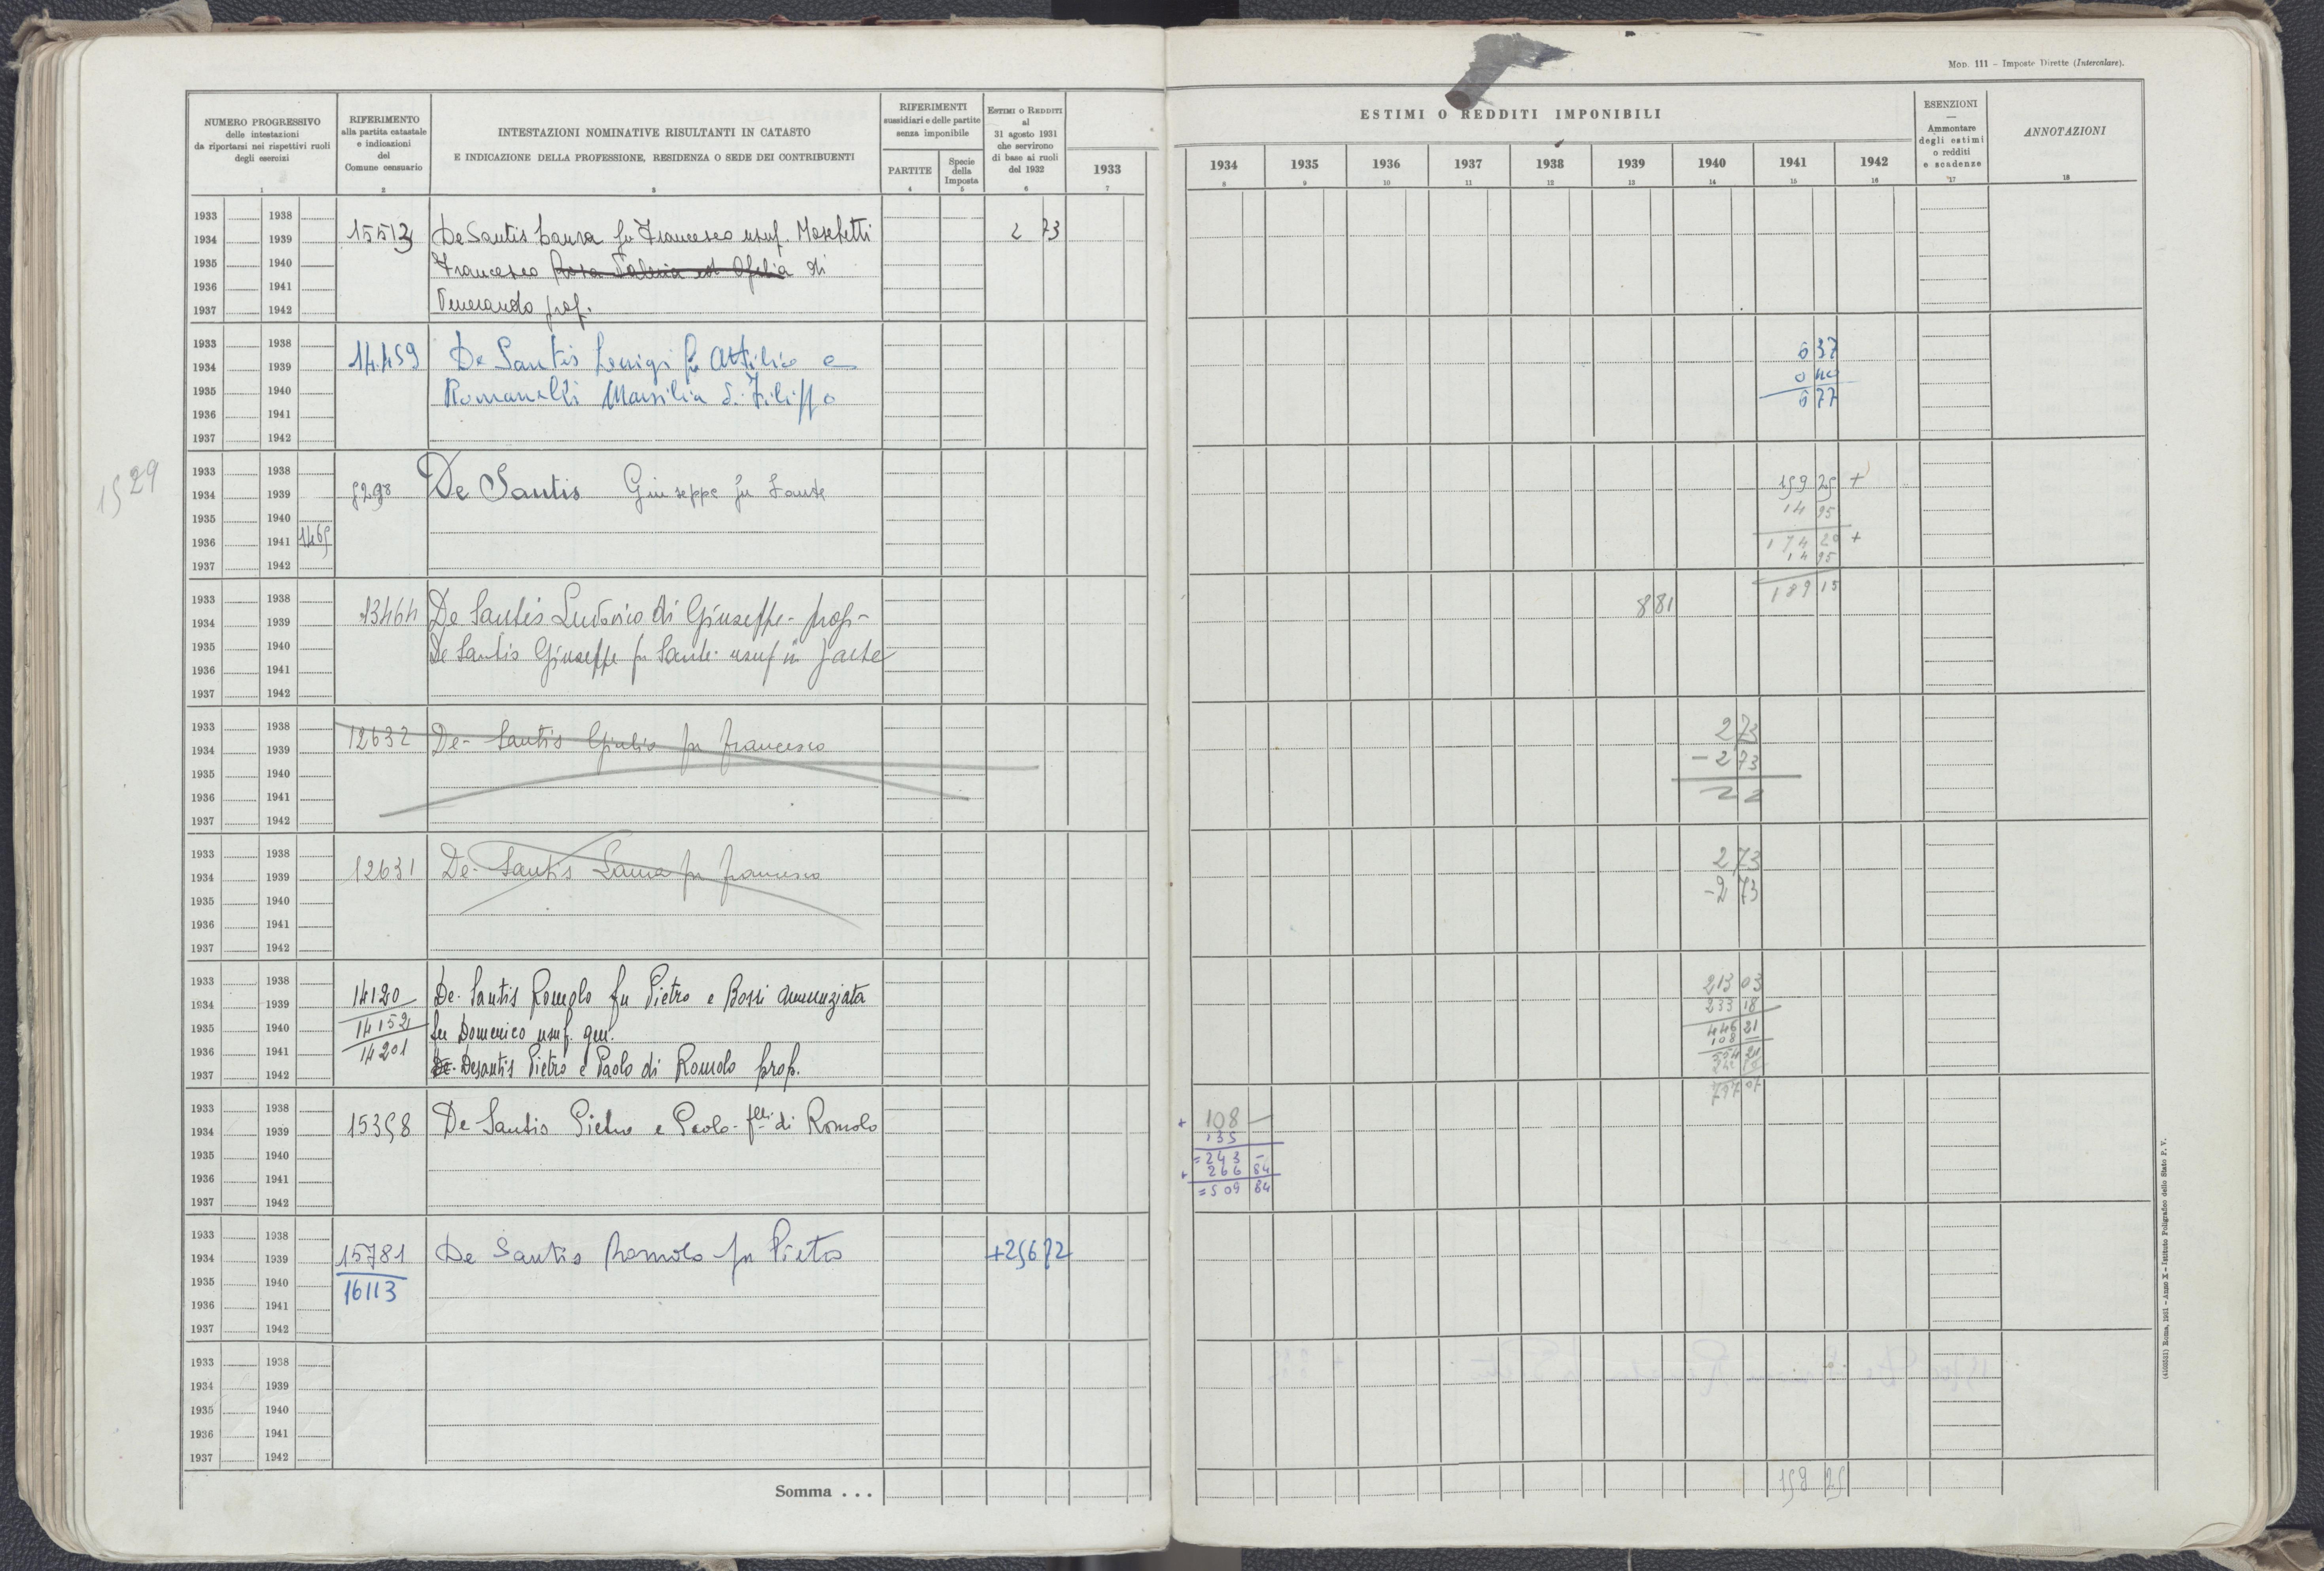 Mod. 111 - Imposte Dirette (Intercalare).
NUMERO PROGRESSIVO
delle intestazioni
da riportarsi nei rispettivi ruoli
degli esercizi
1
RIFERIMENTO
alla partita catastale
e indicazioni
del
Comune censuario
2
INTESTAZIONI NOMINATIVE RISULTANTI IN CATASTO
E INDICAZIONE DELLA PROFESSIONE, RESIDENZA O SEDE DEI CONTRIBUENTI
3
RIFERIMENTI
sussidiari e delle partite
senza imponibile
PARTITE
4
Specie
della
Imposta
5
ESTIMI O REDDITI
al
31 agosto 1931
che servirono
di base ai ruoli
del 1932
6
1933
7
ESTIMI O REDDITI IMPONIBILI
1934 1935 1936 1937 1938 1939 1940 1941 1942
8 9 10 11 12 13 14 15 16
ESENZIONI
Ammontare
degli estimi
o redditi
e scadenze
17
ANNOTAZIONI
18
1933 1938
1934 1939 15513 De Santis Laura fu Francesco usuf. Moschetti 2 73
1935 1940 Francesco Rosa Valeria ed Ofelia di
1936 1941
1937 1942 Venerando prop.
1933 1938
1934 1939 14459 De Santis Luigi fu Attilio e 6 37
1935 1940 Romanelli Marsilia di Filippo 0 40
1936 1941 6 77
1937 1942
1529
1933 1938
1934 1939 5298 De Santis Giuseppe fu Sante 159 25 +
1935 1940 14 95
1936 1941 1465 174 20 +
1937 1942 14 95
189 15
1933 1938
1934 1939 13464 De Santis Ludovico di Giuseppe - prop - 8 81
1935 1940 De Santis Giuseppe fu Sante usuf in parte
1936 1941
1937 1942
1933 1938 2 73
1934 1939 12632 De - Santis Giulia fu Francesco
1935 1940 - 2 73
1936 1941
1937 1942
1933 1938 2 73
1934 1939 12631 De - Santis Laura fu Francesco - 2 73
1935 1940
1936 1941
1937 1942
1933 1938 213 03
1934 1939 14120 De - Santis Romolo fu Pietro e Rossi Annunziata 233 18
1935 1940 14152 fu Domenico usuf. gen. 446 21
108 -
1936 1941 14201 554 21
1937 1942 De - Desantis Pietro e Paolo di Romolo prop.
797 07
1933 1938 + 108 -
1934 1939 15398 De - Santis Pietro e Paolo - f.lli di Romolo 135
1935 1940 = 243 -
1936 1941 + 266 84
1937 1942 = 509 84
1933 1938
1934 1939 15781 De Santis Romolo fu Pietro +256 72
1935 1940 16113
1936 1941
1937 1942
1933 1938
1934 1939
1935 1940
1936 1941
1937 1942
Somma . . . 159 25
(4103531) Roma, 1931 - Anno X - Istituto Poligrafico dello Stato P. V.